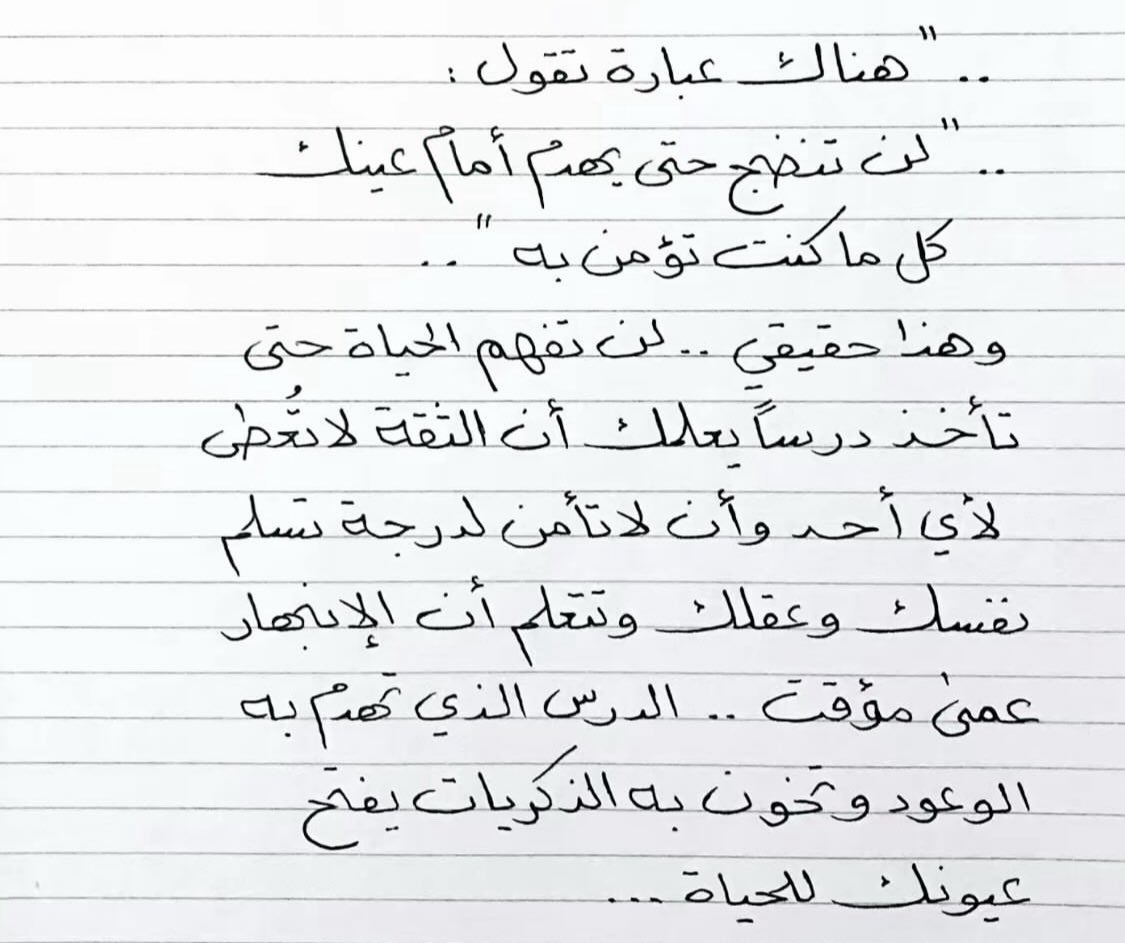 .. " هناك عبارة تقول :
.. " لن تنضج حتى يهدم أمام عينك
كل ما كنت تؤمن به " ..
وهذا حقيقي .. لن تفهم الحياة حتى
تأخذ درساً يعلمك أن الثقة لا تُعطى
لأي أحد وأن لا تأمن لدرجة تسلم
نفسك وعقلك وتتعلم أن الإنبهار
عمىٰ مؤقت .. الدرس الذي تهدم به
الوعود وتخون به الذكريات يفتح
عيونك للحياة ...